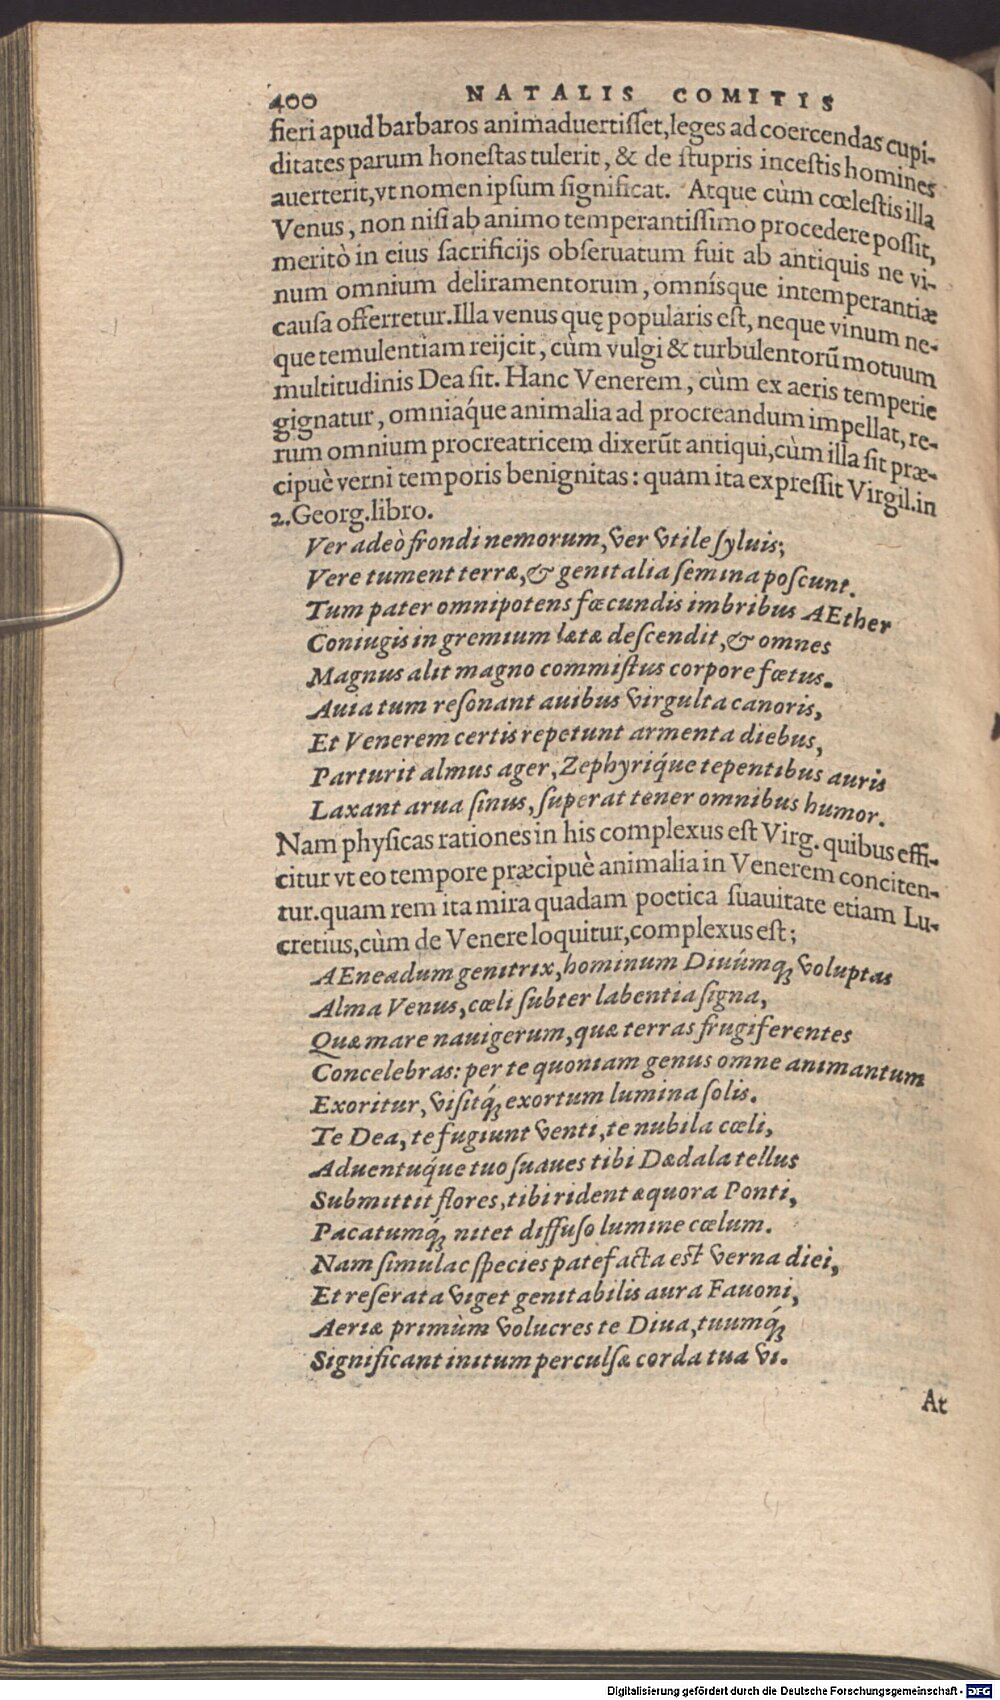 400 NATALIS COMITIS
fieri apud barbaros animaduertiſſet, leges ad coercendas cupi-
ditates parum honeſtas tulerit, & de ſtupris inceſtis homines
auerterit, vt nomen ipſum ſignificat. Atque cùm cœleſtis illa
Venus, non niſi ab animo temperantiſſimo procedere poſſit,
meritò in eius ſacrificijs obſeruatum fuit ab antiquis ne vi-
num omnium deliramentorum, omníſque intemperantiæ
cauſa offerretur. Illa venus quę popularis eſt, neque vinum ne-
que temulentiam reijcit, cùm vulgi & turbulentorũ motuum
multitudinis Dea ſit. Hanc Venerem, cùm ex aeris temperie
gignatur, omniáque animalia ad procreandum impellat, re-
rum omnium procreatricem dixerũt antiqui, cùm illa ſit præ-
cipuè verni temporis benignitas: quam ita expreſſit Virgil. in
2. Georg. libro.
Ver adeò frondi nemorum, ver vtile ſyluis;
Vere tument terræ, & genitalia ſemina poſcunt.
Tum pater omnipotens fœcundis imbribus AEther
Coniugis in gremium lætæ deſcendit, & omnes
Magnus alit magno commiſtus corpore fœtus.
Auia tum reſonant auibus virgulta canoris,
Et Venerem certis repetunt armenta diebus,
Parturit almus ager, Zephyriq́ue tepentibus auris
Laxant arua ſinus, ſuperat tener omnibus humor.
Nam phyſicas rationes in his complexus eſt Virg. quibus effi-
citur vt eo tempore præcipuè animalia in Venerem conciten-
tur. quam rem ita mira quadam poetica ſuauitate etiam Lu-
cretius, cùm de Venere loquitur, complexus eſt;
AEneadum genitrix, hominum Diuúmq; voluptas
Alma Venus, cœli ſubter labentia ſigna,
Quæ mare nauigerum, quæ terras frugiferentes
Concelebras: per te quoniam genus omne animantum
Exoritur, viſitq́; exortum lumina ſolis.
Te Dea, te fugiunt venti, te nubila cœli,
Aduentuq́ue tuo ſuaues tibi Dædala tellus
Submittit flores, tibi rident æquora Ponti,
Pacatumq́; nitet diffuſo lumine cœlum.
Nam ſimulac ſpecies patefacta eſt verna diei,
Et reſerata viget genitabilis aura Fauoni,
Aeriæ primùm volucres te Diua, tuumq́;
Significant initum perculſæ corda tua vi.
At
Digitalisierung gefördert durch die Deutsche Forschungsgemeinschaft - DFG